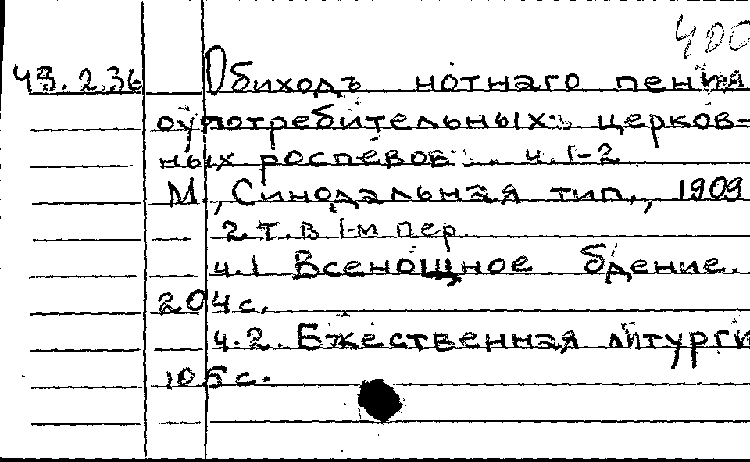 400
43.2.36 Обиходъ нотнаго пения
оупотребительныхъ церков-
ных роспевов. ч. 1-2
М., Синодальная тип., 1909
2 т. в 1-м пер.
ч. 1 Всенощное бдение.
204 с.
ч. 2. Бжественная литурги
105 с.